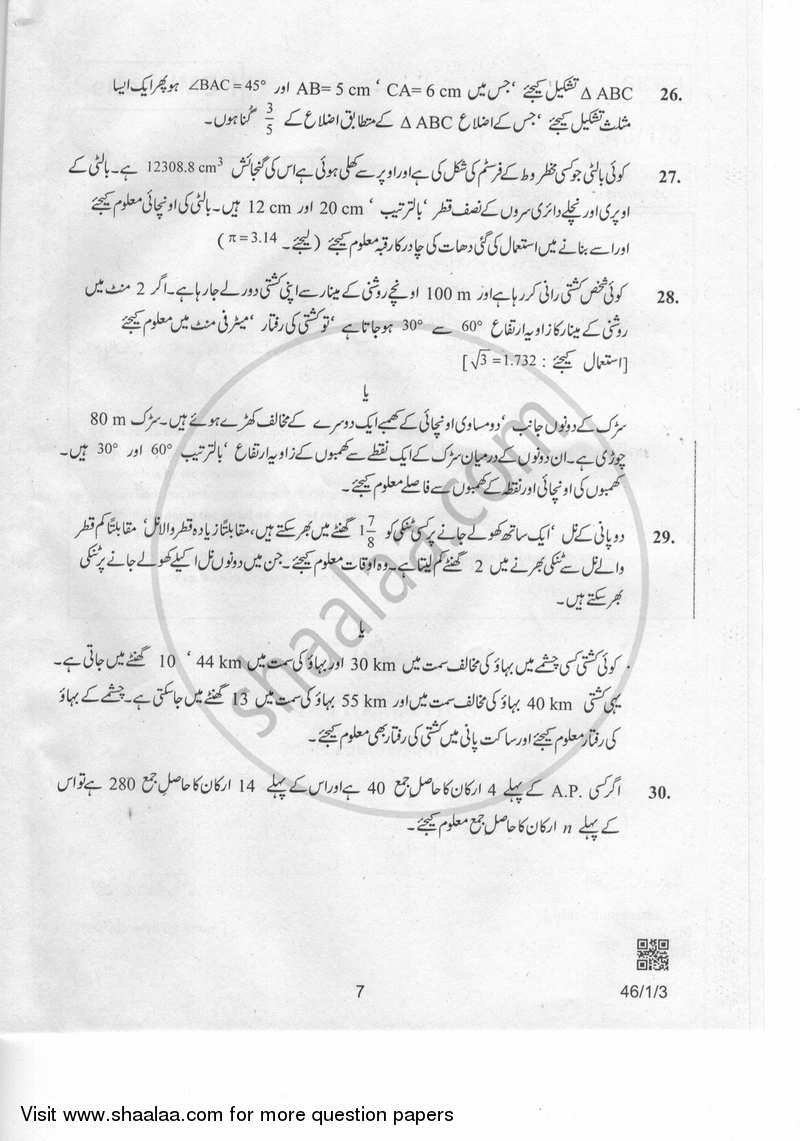 26. Δ ABC تشکیل کیجئے ‘جس میں AB= 5 cm ‘ CA= 6 cm اور ∠BAC = 45° ہو پھر ایک ایسا
مثلث تشکیل کیجئے ‘جس کے اضلاع Δ ABC کے متطابق اضلاع کے 3/5 گنا ہوں۔
27. کوئی بالٹی جو کسی مخروط کے فرسٹم کی شکل کی ہے اور اوپر سے کھلی ہوئی ہے اس کی گنجائش 12308.8 cm³ ہے۔ بالٹی کے
اوپری اور نچلے دائری سروں کے نصف قطر ‘بالترتیب ‘ 20 cm اور 12 cm ہیں۔ بالٹی کی اونچائی معلوم کیجئے
اور اسے بنانے میں استعمال کی گئی دھات کی چادر کا رقبہ معلوم کیجئے (لیجئے۔ π = 3.14)
28. کوئی شخص کشتی رانی کر رہا ہے اور 100 m اونچے روشنی کے مینار سے اپنی کشتی دور لے جا رہا ہے۔ اگر 2 منٹ میں
روشنی کے مینار کا زاویہ ارتفاع 60° سے 30° ہو جاتا ہے ‘تو کشتی کی رفتار ‘میٹر فی منٹ میں معلوم کیجئے
[استعمال کیجئے : √3 = 1.732]
یا
سڑک کے دونوں جانب ‘دو مساوی اونچائی کے کھمبے ایک دوسرے کے مخالف کھڑے ہوئے ہیں۔ سڑک 80 m
چوڑی ہے۔ ان دونوں کے درمیان سڑک کے ایک نقطے سے کھمبوں کے زاویہ ارتفاع ‘بالترتیب 60° اور 30° ہیں۔
کھمبوں کی اونچائی اور نقطہ کے کھمبوں سے فاصلے معلوم کیجئے۔
29. دو پانی کے نل ‘ایک ساتھ کھولے جانے پر کسی ٹنکی کو 1 7/8 گھنٹے میں بھر سکتے ہیں، مقابلتاً زیادہ قطر والا نل ‘مقابلتاً کم قطر
والے نل سے ٹنکی بھرنے میں 2 گھنٹے کم لیتا ہے۔ وہ اوقات معلوم کیجئے۔ جن میں دونوں نل اکیلے کھولے جانے پر ٹنکی
بھر سکتے ہیں۔
یا
کوئی کشتی کسی چشمے میں بہاؤ کی مخالف سمت میں 30 km اور بہاؤ کی سمت میں 44 km ‘ 10 گھنٹے میں جاتی ہے۔
یہی کشتی 40 km بہاؤ کی مخالف سمت میں اور 55 km بہاؤ کی سمت میں 13 گھنٹے میں جا سکتی ہے۔ چشمے کے بہاؤ
کی رفتار معلوم کیجئے اور ساکت پانی میں کشتی کی رفتار بھی معلوم کیجئے۔
30. اگر کسی A.P. کے پہلے 4 ارکان کا حاصل جمع 40 ہے اور اس کے پہلے 14 ارکان کا حاصلِ جمع 280 ہے تو اس
کے پہلے n ارکان کا حاصل جمع معلوم کیجئے۔
shaalaa.com
7
46/1/3
Visit www.shaalaa.com for more question papers